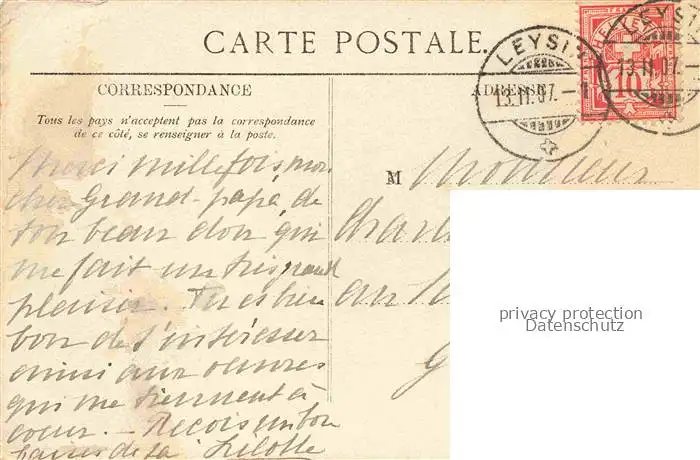 CARTE POSTALE.
CORRESPONDANCE
ADRESSE
Tous les pays n'acceptent pas la correspondance
de ce côté, se renseigner à la poste.
LEYSIN
13.II.07.-1
LEYSIN
13.II.07.-1
10
Merci mille fois, mon
cher Grand-papa, de
ton beau don qui
me fait un très grand
plaisir. Tu es bien
bon de t'intéresser
ainsi aux oeuvres
qui me tiennent à
coeur. - Reçois un bon
baiser de ta Lilotte
M Monsieur
Charl
au
G
privacy protection
Datenschutz